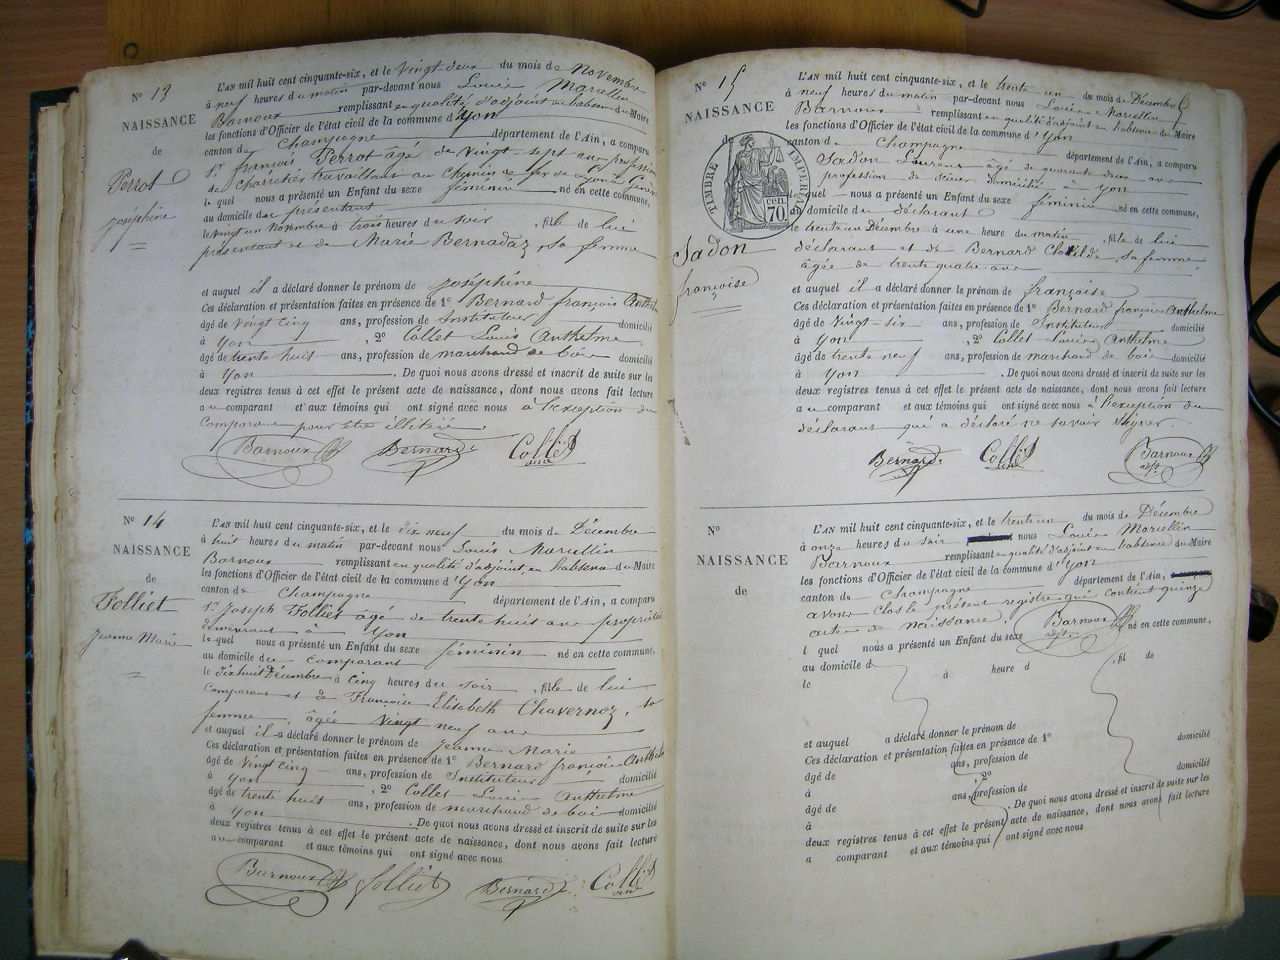 N° 13
NAISSANCE
de
Perrot
joséphine
L'AN mil huit cent cinquante-six, et le vingt deux du mois de Novembre
à neuf heures du matin par-devant nous Louis Marcellin
Barnoux remplissant en qualité d'adjoint en habsence du Maire
les fonctions d'Officier de l'état civil de la commune d'Yon
canton de Champagne département de l'Ain, a comparu
Sr. françois Perrot âgé de vingt-sept ans profession
de travaillant au chemin de fer de Lyon à Genève
le quel nous a présenté un Enfant du sexe féminin né en cette commune,
au domicile du présentant
le vingt un Novembre à trois heures du soir, fille de lui
présentant et de Marie Bernadaz, sa femme
et auquel il a déclaré donner le prénom de joséphine
Ces déclaration et présentation faites en présence de 1° Bernard françois Anthel
âgé de vingt cinq ans, profession de Instituteur domicilié
à Yon, 2° Collet Louis Anthelme
âgé de trente huit ans, profession de marchand de bois domicilié
à Yon. De quoi nous avons dressé et inscrit de suite sur les
deux registres tenus à cet effet le présent acte de naissance, dont nous avons fait lecture
au comparant et aux témoins qui ont signé avec nous à l'exception du
comparant pour être illitéré.
Barnoux Bernard Collet
N° 14
NAISSANCE
de
Folliet
jeanne Marie
L'AN mil huit cent cinquante-six, et le dix neuf du mois de Décembre
à huit heures du matin par-devant nous Louis Marcellin
Barnoux remplissant en qualité d'adjoint, en habsence du Maire
les fonctions d'Officier de l'état civil de la commune d'Yon
canton de Champagne département de l'Ain, a comparu
Sr. Joseph Folliet âgé de trente huit ans propriétaire
demeurant à Yon
le quel nous a présenté un Enfant du sexe féminin né en cette commune,
au domicile du comparant
le dix huit Décembre à cinq heures du soir, fille de lui
comparant et de Françoise Elisabeth Chavernoz, sa
femme, âgée vingt neuf ans
et auquel il a déclaré donner le prénom de jeanne Marie
Ces déclaration et présentation faites en présence de 1° Bernard françois Anthelme
âgé de vingt cinq ans, profession de Instituteur domicilié
à Yon, 2° Collet Louis Anthelme
âgé de trente huit ans, profession de marchand de bois domicilié
à Yon. De quoi nous avons dressé et inscrit de suite sur les
deux registres tenus à cet effet le présent acte de naissance, dont nous avons fait lecture
au comparant et aux témoins qui ont signé avec nous
Barnoux folliet Bernard Collet
N° 15
NAISSANCE
de
TIMBRE IMPERIAL
70 cen.
Sadon
françoise
L'AN mil huit cent cinquante-six, et le trente un du mois de Décembre
à neuf heures du matin par-devant nous Louis Marcellin
Barnoux remplissant en qualité d'adjoint en habsence du Maire
les fonctions d'Officier de l'état civil de la commune d'Yon
canton de Champagne département de l'Ain, a comparu
Sadon Laurent âgé de quarante deux ans
profession de domicilié à Yon
le quel nous a présenté un Enfant du sexe féminin né en cette commune,
au domicile du déclarant
le trente un Décembre à une heure du matin, fille de lui
déclarant et de Bernard Clotilde sa femme
âgée de trente quatre ans
et auquel il a déclaré donner le prénom de françoise
Ces déclaration et présentation faites en présence de 1° Bernard françois Anthelme
âgé de vingt-six ans, profession de Instituteur domicilié
à Yon, 2° Collet Louis Anthelme
âgé de trente neuf ans, profession de marchand de bois domicilié
à Yon. De quoi nous avons dressé et inscrit de suite sur les
deux registres tenus à cet effet le présent acte de naissance, dont nous avons fait lecture
au comparant et aux témoins qui ont signé avec nous à l'exception du
déclarant qui a déclaré ne savoir signer.
Bernard Collet Barnoux adjt
N°
NAISSANCE
de
L'AN mil huit cent cinquante-six, et le trente un du mois de Décembre
à onze heures du soir nous Louis Marcellin
Barnoux remplissant en qualité d'adjoint en habsence du Maire
les fonctions d'Officier de l'état civil de la commune d'Yon
canton de Champagne département de l'Ain,
avons clos le présent registre qui contient quinze
actes de naissance. Barnoux adjt
l quel nous a présenté un Enfant du sexe né en cette commune,
au domicile d
le à heure d, fil de
et auquel a déclaré donner le prénom de
Ces déclaration et présentation faites en présence de 1°
âgé de ans, profession de domicilié
à, 2°
âgé de ans, profession de domicilié
à. De quoi nous avons dressé et inscrit de suite sur les
deux registres tenus à cet effet le présent acte de naissance, dont nous avons fait lecture
a comparant et aux témoins qui ont signé avec nous